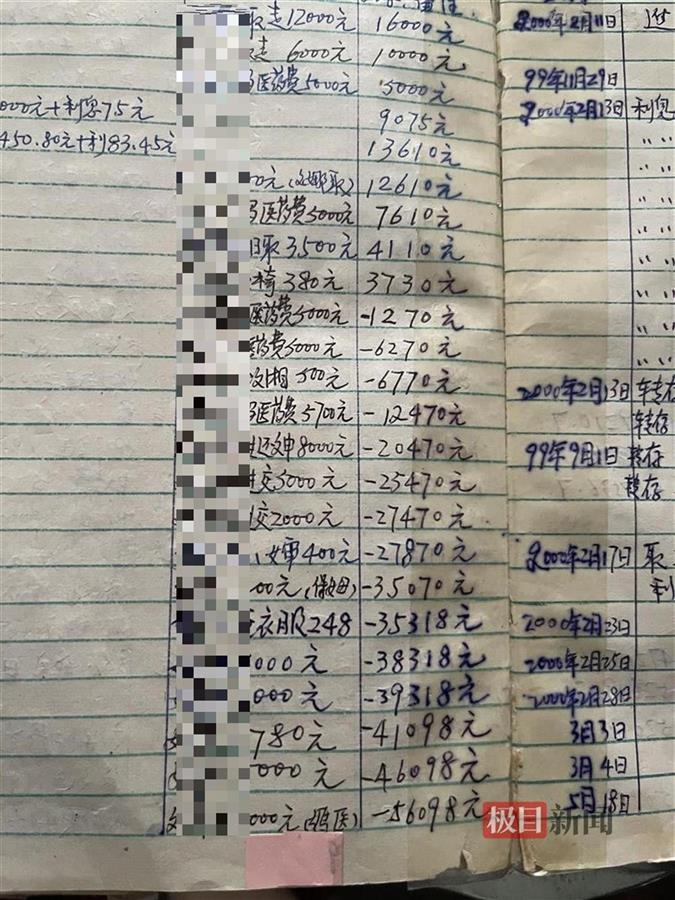 取走12000元 16000元 2000年2月11日
走 6000元 10000元
医药费5000元 5000元 99年11月29日
000元+利息75元 9075元 2000年2月13日 利息
450.80元+利83.45元 13610元 〃 〃
00元 12610元 〃 〃
医药费5000元 7610元 〃 〃
取3.500元 4110元 〃 〃
椅380元 3730元 〃 〃
医药费5000元 -1270元 〃 〃
医药费5000元 -6270元 〃 〃
500元 -6770元 2000年2月13日 转存
医药费5700元 -12470元 转存
8000元 -20470元 99年9月1日 转存
交5000元 -25470元 转存
交2000元 -27470元
400元 -27870元 2000年2月17日 取
00元(保姆) -35070元 利
衣服248 -35318元 2000年2月23日
000元 -38318元 2000年2月25日
000元 -39318元 2000年2月28日
780元 -41098元 3月3日
000元 -46098元 3月4日
000元 -56098元 5月18日
极目新闻